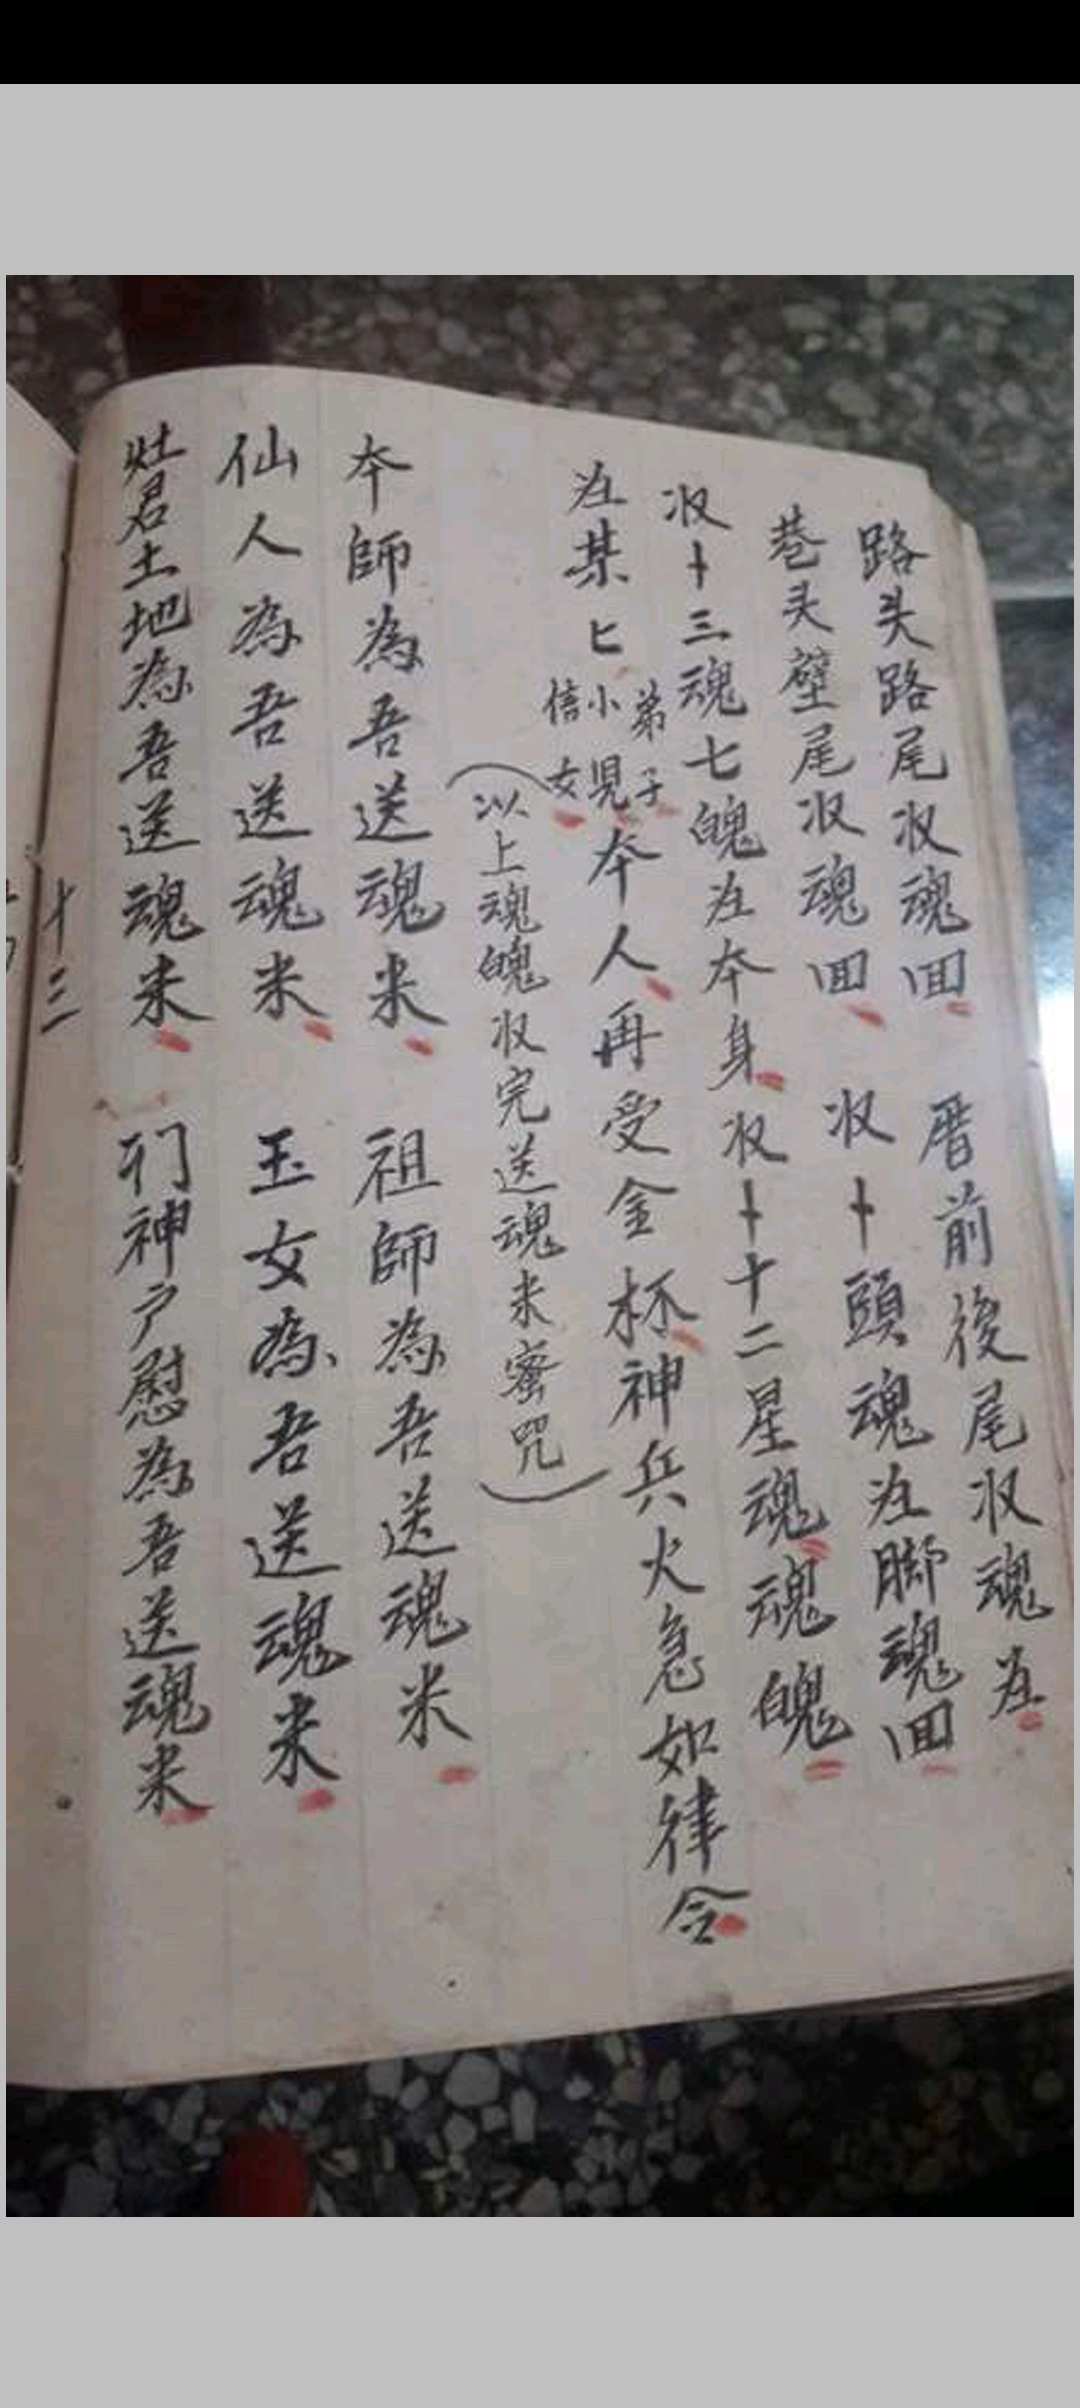 路头路尾収魂回 厝前後尾収魂在
巷头壁尾収魂回 収十頭魂在脚魂回
収十三魂七魄在本身 収十十二星魂魂魄
在某匕 弟子 小児 信女 本人再受金杯神兵火急如律令
（以上魂魄収完送魂米蜜咒）
本師為吾送魂米 祖師為吾送魂米
仙人為吾送魂米 玉女為吾送魂米
灶君土地為吾送魂米 门神户慰為吾送魂米
十三